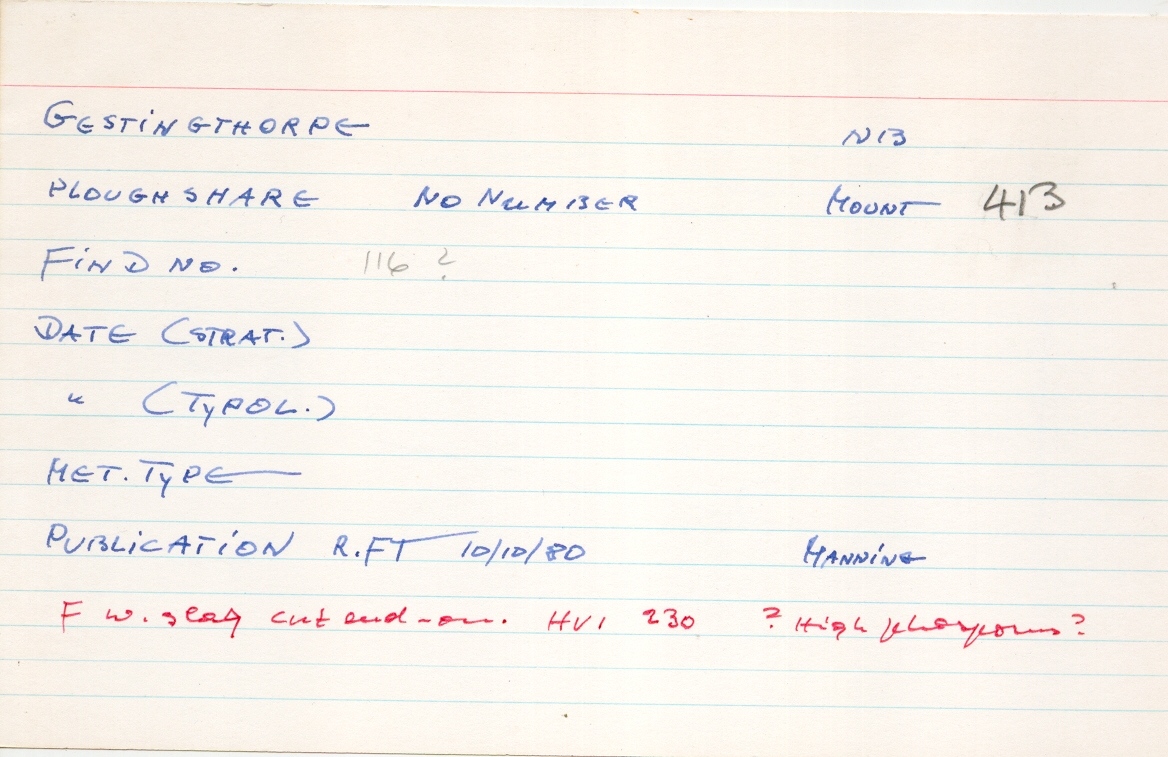 GESTINGTHORPE N13
PLOUGHSHARE NO NUMBER MOUNT 413
FIND NO. 116 ?
DATE (STRAT.)
" (TYPOL.)
MET. TYPE
PUBLICATION R.FT 10/10/80 MANNING
F w. slag cut end-on. HV1 230 ? High phosphorus ?